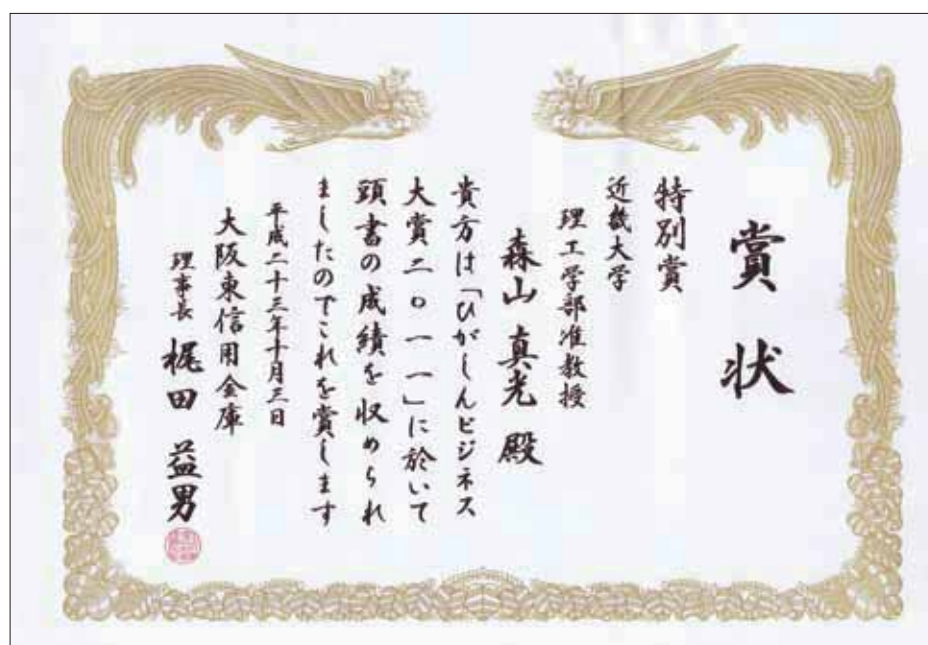 賞状
特別賞
近畿大学
理工学部准教授
森山真光殿
貴方は「ひがしんビジネス
大賞二〇一一」に於いて
頭書の成績を収められ
ましたのでこれを賞します
平成二十三年十月三日
大阪東信用金庫
理事長 梶田益男